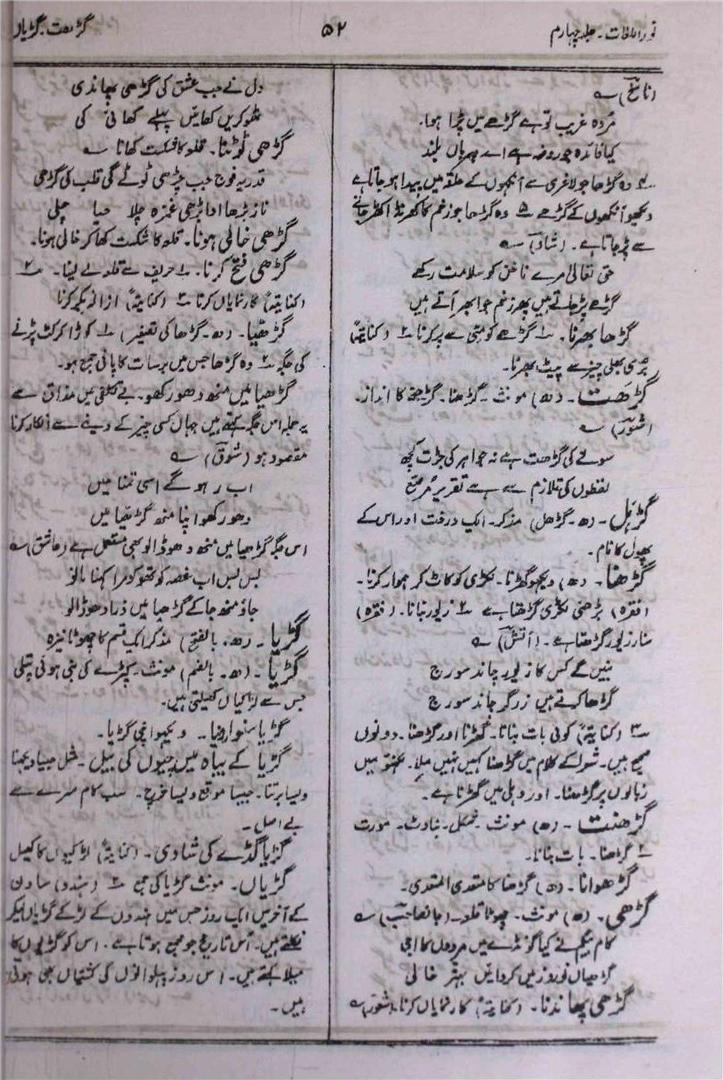 نور اللغات۔ جلد چہارم
۵۲
گڑھت۔ گڑیاں
(ناسخ) ؎
مُردہ غریب تو ہے گڑھے میں پڑا ہوا۔
کیا فائدہ جو روضہ ہے اے مہرباں بلند
۴ وہ گڑھا جو لاغری سے آنکھوں کے حلقہ میں پیدا ہو جاتا ہے
دیکھو آنکھوں کے گڑھے ۵ وہ گڑھا جو زخم کا کھرنڈ اکھڑ جانے
سے پڑ جاتا ہے۔ (شاد) ؎
حق تعالیٰ مرے ناخن کو سلامت رکھے
گڑھے پڑ جاتے ہیں پھر زخم جو ابھر آتے ہیں
گڑھا بھرنا۔ ۱ گڑھے کو مٹی سے پر کرنا ۲ (کنایۃً)
بُری بھلی چیز سے پیٹ بھرنا۔
گڑھت۔ (ھ) مونث۔ گڑھنا۔ گڑھنے کا انداز۔
(شعور) ؎
سونے کی گڑھت ہے نہ جواہر کی جڑت کچھ
لفظوں کی تلازم سے ہے تقریر مرصّع
گڑہل۔ (ھ۔ گڑھل) مذکر۔ ایک درخت اور اس کے
پھول کا نام۔
گڑھنا۔ (ھ) دیکھو گھڑنا۔ لکڑی کو کاٹ کر ہموار کرنا۔
(فقرہ) بڑھئی لکڑی گڑھتا ہے ۲ زیور بنانا۔ (فقرہ)
سنار زیور گڑھتا ہے۔ (آتش) ؎
بنیں گے کس کا زیور چاند سورج
گڑھا کرتے ہیں زرگر چاند سورج
۳ (کنایۃً) کوئی بات بنانا۔ گھڑنا اور گڑھنا۔ دونوں
صحیح ہیں۔ شعرا کے کلام میں گڑھنا کہیں نہیں ملا۔ لکھنو میں
زبانوں پر گڑھنا۔ اور دہلی میں گھڑنا ہے۔
گڑھنت۔ (ھ) مونث۔ شکل۔ بناوٹ۔ صورت
۲ گڑھنا۔ بات بنانا۔
گڑھوانا۔ (ھ) گڑھنا کا متعدی المتعدی۔
گڑھی۔ (ھ) مونث۔ چھوٹا قلعہ۔ (جانصاحب) ؎
کام بیگم نے کیا گونڈے میں مردوں کا ابھی
گڑھیاں نوروز میں کروائیں بہتر خالی
گڑھی پھاندنا۔ (کنایۃً) کار نمایاں کرنا۔ (شعور) ؎
دل نے جب عشق کی گڑھی پھاندی
ٹھوکریں کھائیں پہلے کھائی کی
گڑھی ٹوٹنا۔ قلعہ کا شکست کھانا ؎
قدریہ فوج جب چڑھی ٹوٹے گی قلب کی گڑھی
ناز بڑھا ادا بڑھی غمزہ چلا حیا چلی
گڑھی خالی ہونا۔ قلعہ کا شکست کھا کر خالی ہونا۔
گڑھی فتح کرنا۔ ۱ حریف سے قلعہ لے لینا۔ ۲
(کنایۃً) کار نمایاں کرنا ۳ (کنایۃً) ازالہ بکر کرنا
گڑھیا۔ (ھ۔ گڑھا کی تصغیر) ۱ کوڑا کرکٹ پڑنے
کی جگہ ۲ وہ گڑھا جس میں برسات کا پانی جمع ہو۔
گڑھیا میں منھ دھو رکھو۔ بے تکلفی میں مذاق سے
یہ جملہ اس جگہ کہتے ہیں جہاں کسی چیز کے دینے سے انکار کرنا
مقصود ہو (شوق) ؎
اب رہو گے اسی تمنا میں
دھو رکھو اپنا منھ گڑھیا میں
اس جگہ گڑھیا میں منھ دھو ڈالو بھی مستعمل ہے (عاشق) ؎
بس بس اب غصہ کو تھوکو مرا کہنا مانو
جاؤ منھ جا کے گڑھیا میں ذرا دھو ڈالو
گڑیا۔ (ھ۔ بالفتح) مذکر ایک قسم کا چھوٹا نیزہ
گڑیا۔ (ھ۔ بالضم) مونث۔ کپڑے کی بنی ہوئی پتلی
جس سے لڑکیاں کھیلتی ہیں۔
گڑیا سنوارنا۔ دیکھو اپنی گڑیا۔
گڑیا کے بیاہ میں چیوں کی بیل۔ مثل جیسا دیکھنا
ویسا برتنا۔ جیسا موقع ویسا خرچ۔ سب کام سرے سے
بے اصل۔
گڑیا گڈے کی شادی۔ (کنایۃً) لڑکیوں کا کھیل
گڑیاں۔ مونث گڑیا کی جمع ۲ (ہندو) ساون
کے آخر میں ایک روز جس میں ہندوں کے لڑکے گڑیاں لیکر
نکلتے ہیں۔ اس تاریخ جو مجمع ہوتا ہے۔ اس کو گڑیوں کا
میلا کہتے ہیں۔ اس روز پہلوانوں کی کشتیاں بھی ہوتی
ہیں۔